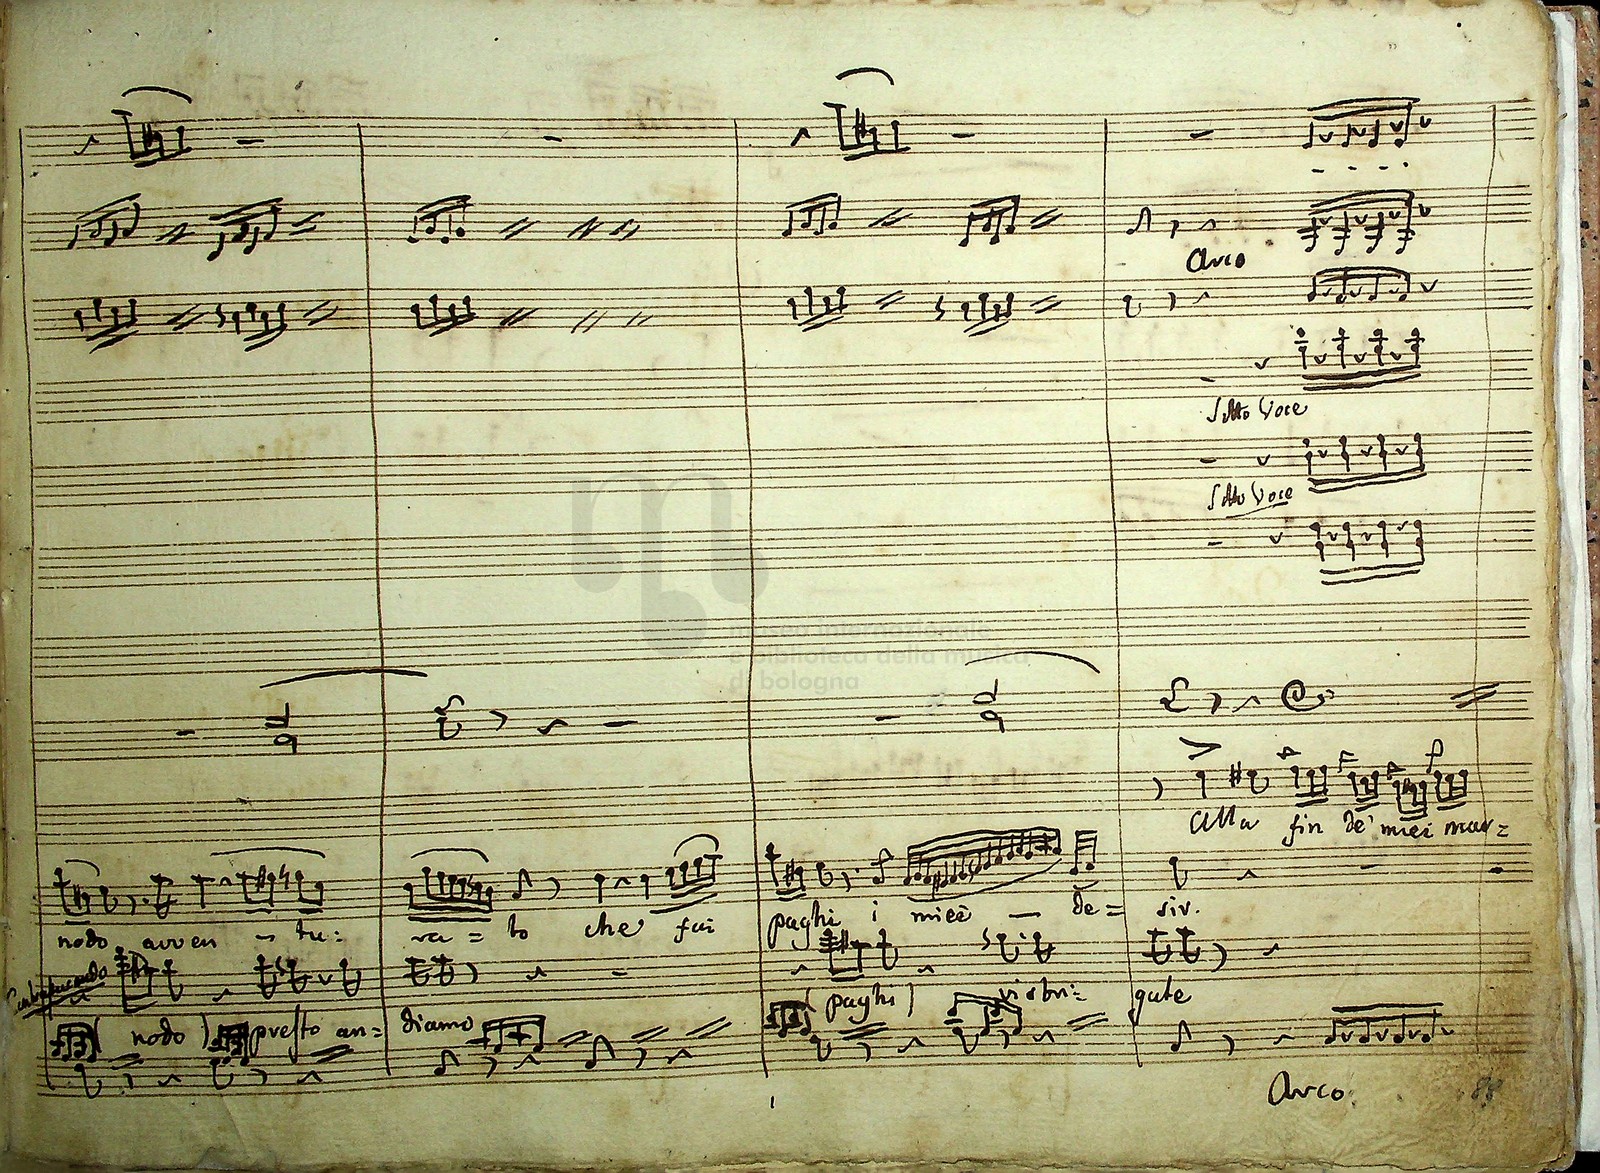 Arco
Sotto Voce
Sotto Voce
museo internazionale
e biblioteca della musica
di bologna
Alla fin de' miei mar=
nodo avven - tu= ra = to che fai paghi i miei — de= sir.
( nodo ) presto an= diamo ( paghi ) vi sbri= gate
Arco
88